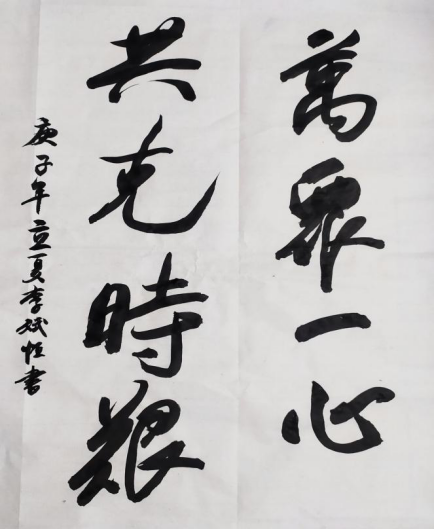 萬眾一心
共克時艱
庚子年立夏李斌恒書